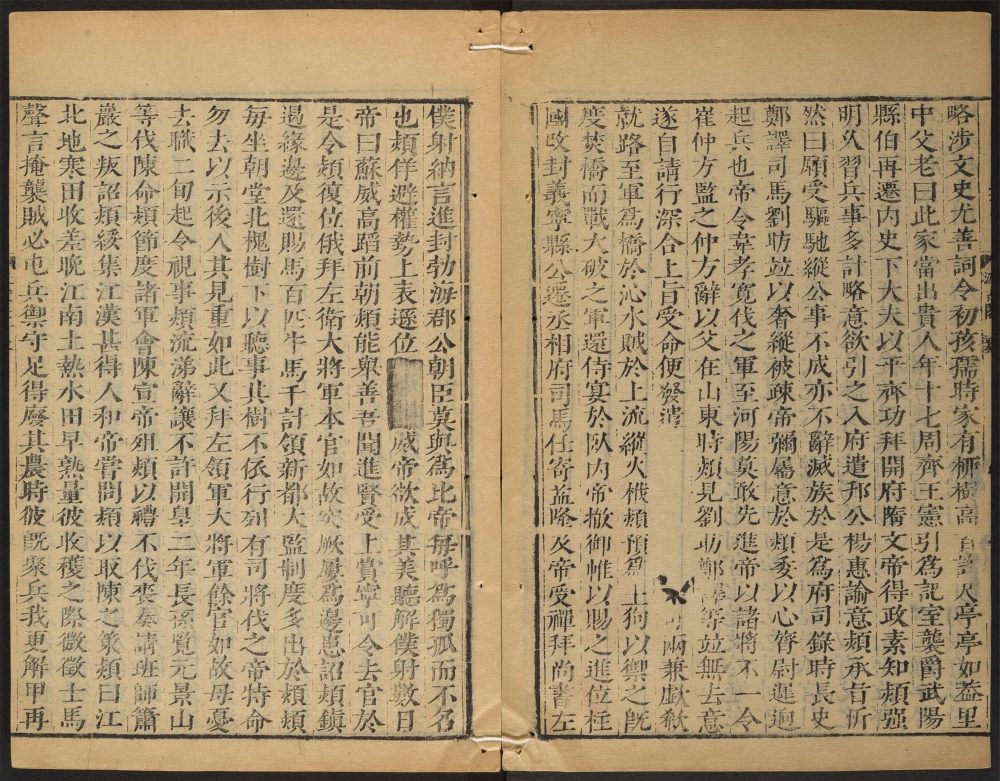 略涉文史尤善詞令初孩孺時家有柳樹高百許尺亭亭如葢里
中父老曰此家當出貴人年十七周齊王憲引爲記室襲爵武陽
縣伯再遷内史下大夫以平齊功拜開府隋文帝得政素知熲强
明久習兵事多計略意欲引之入府遣邗公楊惠諭意熲承旨忻
然曰願受驅馳縱公事不成亦不辭滅族於是爲府司錄時長史
鄭譯司馬劉昉竝以奢縱被疎帝彌屬意於熲委以心膂尉遲迥
起兵也帝令韋孝寬伐之軍至河陽莫敢先進帝以諸將不一令
崔仲方監之仲方辭以父在山東時熲見劉昉鄭譯等竝無去意
遂自請行深合上旨受命便發遣兩兼歔欷
就路至軍爲橋於沁水賊於上流縱火栰熲預爲土狗以禦之旣
度焚橋而戰大破之軍還侍宴於臥内帝撤御帷以賜之進位柱
國改封義寧縣公遷丞相府司馬任寄益隆及帝受禪拜尚書左
僕射納言進封勃海郡公朝臣莫與爲比帝每呼爲獨孤而不名
也熲佯避權勢上表遜位威帝欲成其美聽解僕射數日
帝曰蘇威高蹈前朝熲能舉善吾聞進賢受上賞寧可令去官於
是令熲復位俄拜左衛大將軍本官如故突厥屢爲邊患詔熲鎭
遏緣邊及還賜馬百匹牛馬千計領新都大監制度多出於熲熲
每坐朝堂北槐樹下以聽事其樹不依行列有司將伐之帝特命
勿去以示後人其見重如此又拜左領軍大將軍餘官如故母憂
去職二旬起令視事熲流涕辭讓不許開皇二年長孫覽元景山
等伐陳命熲節度諸軍會陳宣帝殂熲以禮不伐喪奏請班師蕭
巖之叛詔熲綏集江漢甚得人和帝嘗問熲以取陳之策熲曰江
北地寒田收差晚江南土熱水田早熟量彼收穫之際微徵士馬
聲言掩襲賊必屯兵禦守足得廢其農時彼旣聚兵我更解甲再